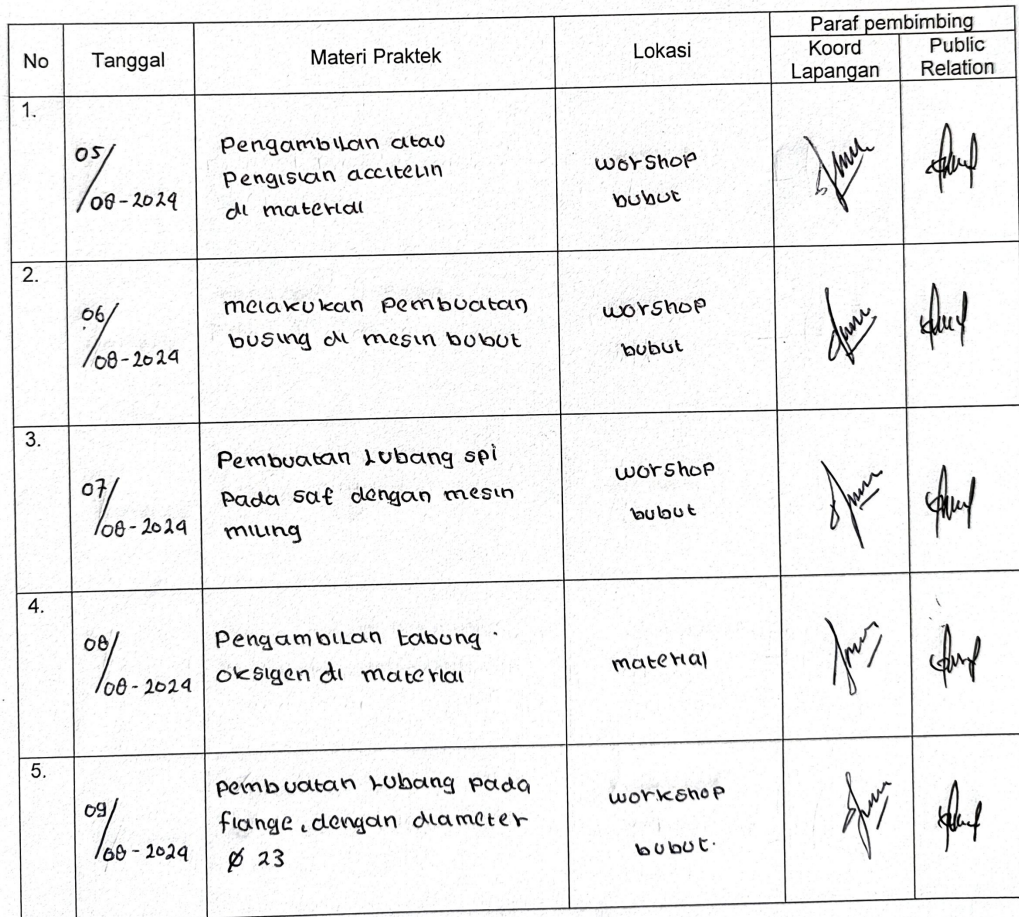 Paraf pembimbing
No Tanggal Materi Praktek Lokasi Koord Lapangan Public Relation
1.
05/08-2024
Pengambilan atau
Pengisian accitelin
di material
worshop
bubut
2.
06/08-2024
melakukan pembuatan
busing di mesin bubut
worshop
bubut
3.
07/08-2024
Pembuatan Lubang spi
Pada saf dengan mesin
miling
worshop
bubut
4.
08/08-2024
Pengambilan tabung
oksigen di material
material
5.
09/08-2024
pembuatan Lubang pada
flange, dengan diameter
Ø 23
workshop
bubut.